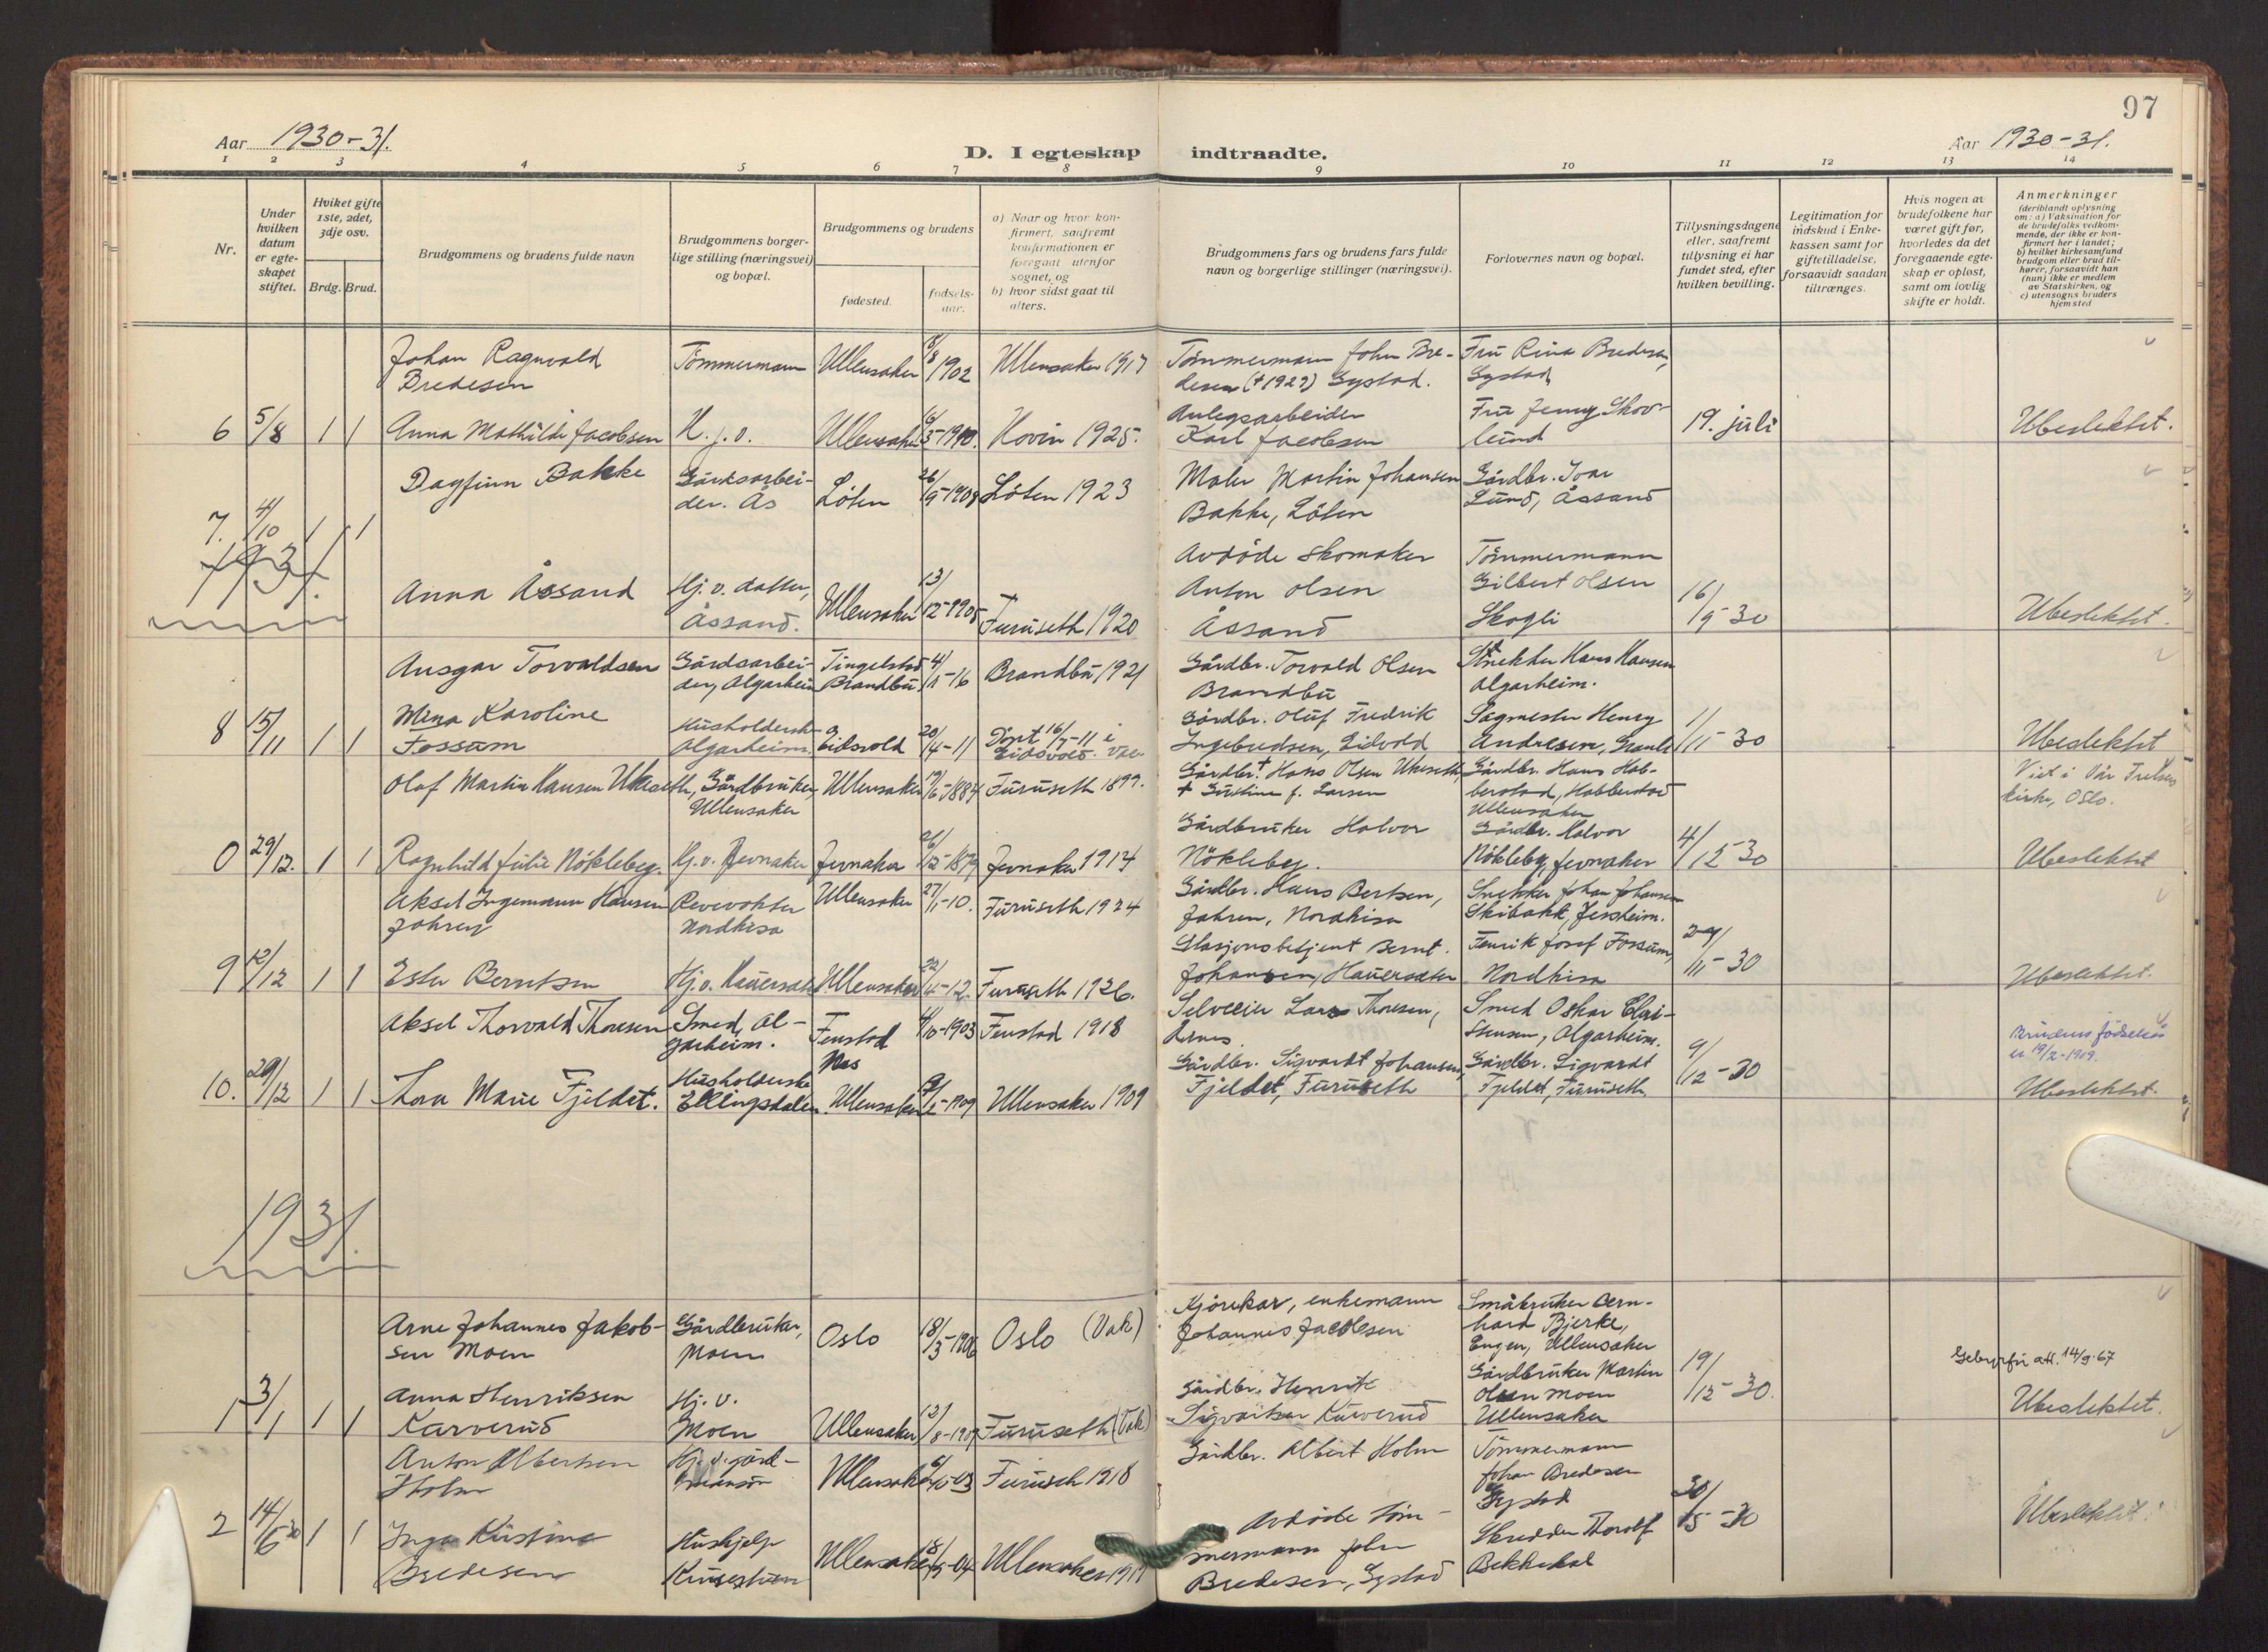 97
Aar 1930-31.
D. I egteskap indtraadte.
Aar 1930-31.
1 2 3 4 5 6 7 8 9 10 11 12 13 14
Nr.
Under hvilken datum er egteskapet stiftet.
Hviket gifte 1ste, 2det, 3dje osv.
Brdg. Brud.
Brudgommens og brudens fulde navn
Brudgommens borgerlige stilling (næringsvei) og bopæl.
Brudgommens og brudens
fødested.
fødselsaar.
a) Naar og hvor konfirmert, saafremt konfirmationen er foregaat utenfor sognet, og
b) hvor sidst gaat til alters.
Brudgommens fars og brudens fars fulde navn og borgerlige stillinger (næringsvei).
Forlovernes navn og bopæl.
Tillysningsdagene eller, saafremt tillysning ei har fundet sted, efter hvilken bevilling.
Legitimation for indskud i Enkekassen samt for giftetilladelse, forsaavidt saadan tiltrænges.
Hvis nogen av brudefolkene har været gift før, hvorledes da det foregaaende egteskap er opløst, samt om lovlig skifte er holdt.
Anmerkninger
(deriblandt oplysning om: a) Vaksination for de brudefolks vedkommende, der ikke er konfirmert her i landet; b) hvilket kirkesamfund brudgom eller brud tilhører, forsaavidt han (hun) ikke er medlem av Statskirken, og c) utensogns bruders hjemsted
Johan Ragnvald Bredesen Tömmermann Ullensaker 8/8 1902 Ullensaker 1917 Tömmermann John Bredesen (+1929) Gystad. Fru Rina Bredesen, Gystad
6 5/8 1 1 Anna Mathilde Jacobsen H.j.v. Ullensaker 6/5-1910. Hovin 1925. Anlegsarbeider Karl Jacobsen Fru Jenny Skovlund 19. juli Ubeslektet.
Dagfinn Bakke Gårdsarbeider. Ås Löten 26/9-1908 Löten 1923 Maler Martin Johansen Bakke, Löten Gårdbr. Ivar Lund, Åssand
7. 4/10 1 1
1931.
Anna Åssand Hj. v. datter, Åssand. Ullensaker 13/12-1905 Furuseth 1920 Avdöde skomaker Anton Olsen Åssand Tömmermann Gilbert Olsen Skogli 16/9-30 Ubeslektet.
Ansgar Torvaldsen Gårdsarbeider, Algarheim Tingelstad Brandbu 4/1-16 Brandbu 1921 Gårdbr. Torvald Olsen Brandbu Snekker Hans Hansen Algarheim.
8 15/11 1 1 Mina Karoline Fossum Husholderske Algarheim. Eidsvold 20/4-11 Döpt 16/7-11 i Eidsvold. Gårdbr. Oluf Fredrik Ingebretsen, Eidvold Sagmester Henry Andresen, 1/11-30 Ubeslektet
Olaf Martin Hansen Ukeseth, Gårdbruker, Ullensaker Ullensaker /6-1884 Furuseth 1899. Gårdbr. + Hans Olsen Ukeseth, + f. Larsen Gårdbr. Hans Habberstad, Habberstad Ullensaker Viet i Vår Frelsers kirke, Oslo.
0 29/12. 1 1 Ragnhild Julie Nökleberg. Hj. v. Jevnaker Jevnaker 26/12-1879 Jevnaker 1914 Gårdbruker Halvor Nökleberg. Gårdbr. Halvor Nökleberg, Jevnaker 4/12-30 Ubeslektet
Aksel Ingemann Hansen Jahren Revevokter Nordkisa Ullensaker 27/1-10. Furuseth 1924 Gårdbr. Hans Bertsen, Jahren, Nordkisa Snekker Johan Johansen Skibakk, Jessheim.
9 12/12 1 1 Ester Berntsen Hj. v. Hauerseter Ullensaker 22/4-12 Furuseth 1926. Stasjonsbetjent Bernt Johansen, Hauerseter Fenrik Josef Fossum, Nordkisa 29/11-30 Ubeslektet.
Aksel Thorvald Thoresen Smed, Algarheim. Fenstad Nes 4/10-1903 Fenstad 1918 Selveier Lars Thoresen, Årnes Smed Oskar Christensen, Algarheim. Brudens födselsår er 19/2-1909.
10. 29/12 1 1 Thora Marie Fjeldet. Husholderske Ellingsdalen Ullensaker 9/2-1909 Ullensaker 1909 Gårdbr. Sigvardt Johansen, Fjeldet, Furuseth Gårdbr. Sigvardt Fjeldet, Furuseth 9/12-30 Ubeslektet.
1931.
Arne Johannes Jakobsen Moen Gårdbruker, Moen Oslo 18/3-1906 Oslo (Vak) Kjörekar, enkemann Johannes Jacobsen Småbruker Bernhard Bjerke, Engen, Ullensaker
Gebyrfri att. 14/9-67
1 3/1 1 1 Anna Henriksen Kurverud Hj. v. Moen Ullensaker 12/8-1909 Furuseth (Vak) Gårdbr. Henrik Sigvartsen Kurverud Gårdbruker Martin Olsen Moen Ullensaker 19/12-30. Ubeslektet.
Anton Albertsen Holm Hj. v. gård Ullensaker 6/10-03 Furuseth 1918 Gårdbr. Albert Holm Tömmermann Johan Bredesen Gystad
2 14/6 30 1 1 Inga Kristine Bredesen Hushjelp Ullensaker 8/5-04 Ullensaker 1919 Avdöde tömmermann John Bredesen, Gystad Skredder Thorolf Bekkedal 30/5-30 Ubeslektet.